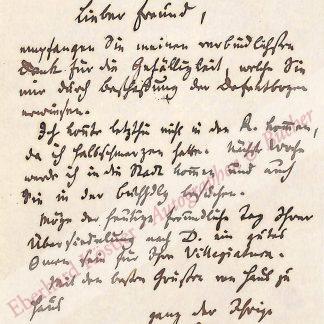 Lieber Freund,
empfangen Sie meinen verbindlichsten
Dank für die Gefälligkeit, welche Sie
mir durch Beschaffung der Defektbogen
erwiesen.
Ich konnte letzthin nicht in den K. kommen,
da ich Halsschmerzen hatte. Nächste Woche
werde ich in die Stadt kommen und auch
Sie in der Buchhdlg besuchen.
Möge der heutige freundliche Tag Ihrer
Übersiedelung nach D. ein gutes
Omen sein für Ihre Villegiatura.
Mit den besten Grüßen von Haus zu
Haus
ganz der Ihrige
Eberhard Köstler Autographen & Bücher